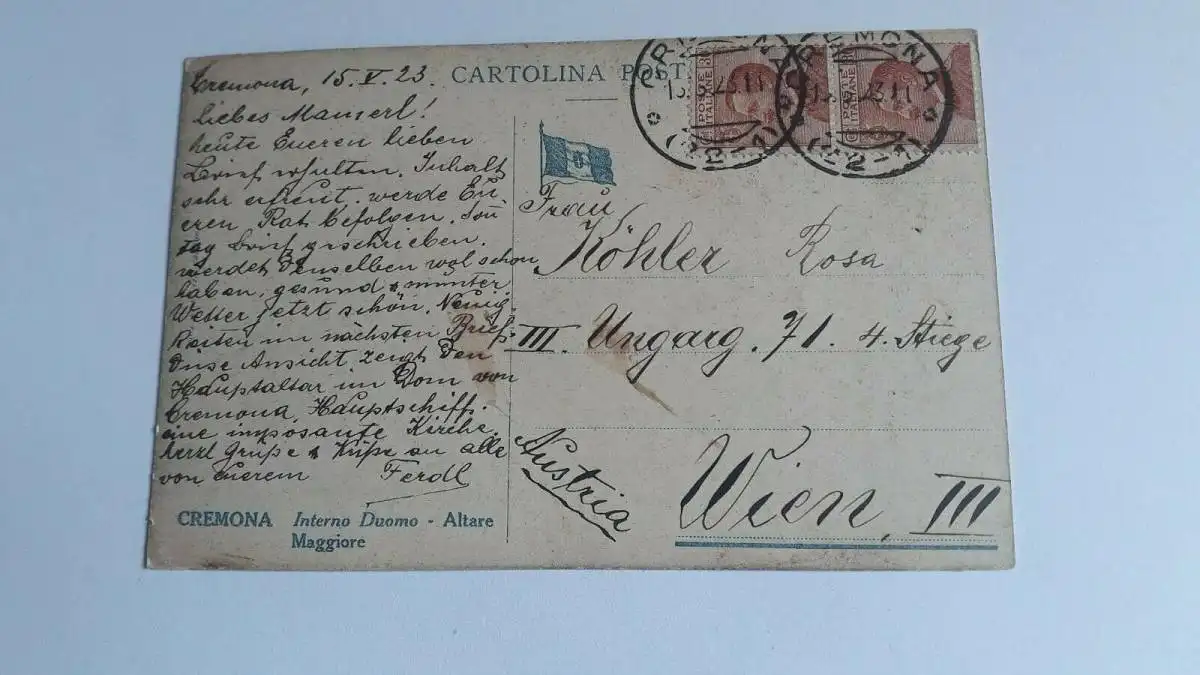 Cremona, 15.V.23.
CARTOLINA POST
liebes Mamerl!
heute Eueren lieben
Brief erhalten. Inhalt
sehr erfreut. werde Eu-
eren Rat befolgen. Son
tag Brief geschrieben.
werdet denselben wol schon
haben, gesund & munter
Wetter jetzt schön. Neuig
keiten im nächsten Brief.
Diese Ansicht zeigt den
Hauptaltar im Dom von
Cremona, Hauptschiff.
eine imposante Kirche.
herzl Grüße & Küße an alle
von Euerem Ferdl
CREMONA Interno Duomo - Altare
Maggiore
POSTE
ITALIANE
CREMONA
(22-1)
POSTE
ITALIANE
CREMONA
(22-1)
Frau
Köhler Rosa
III. Ungarg. 71. 4. Stiege
Austria
Wien, III